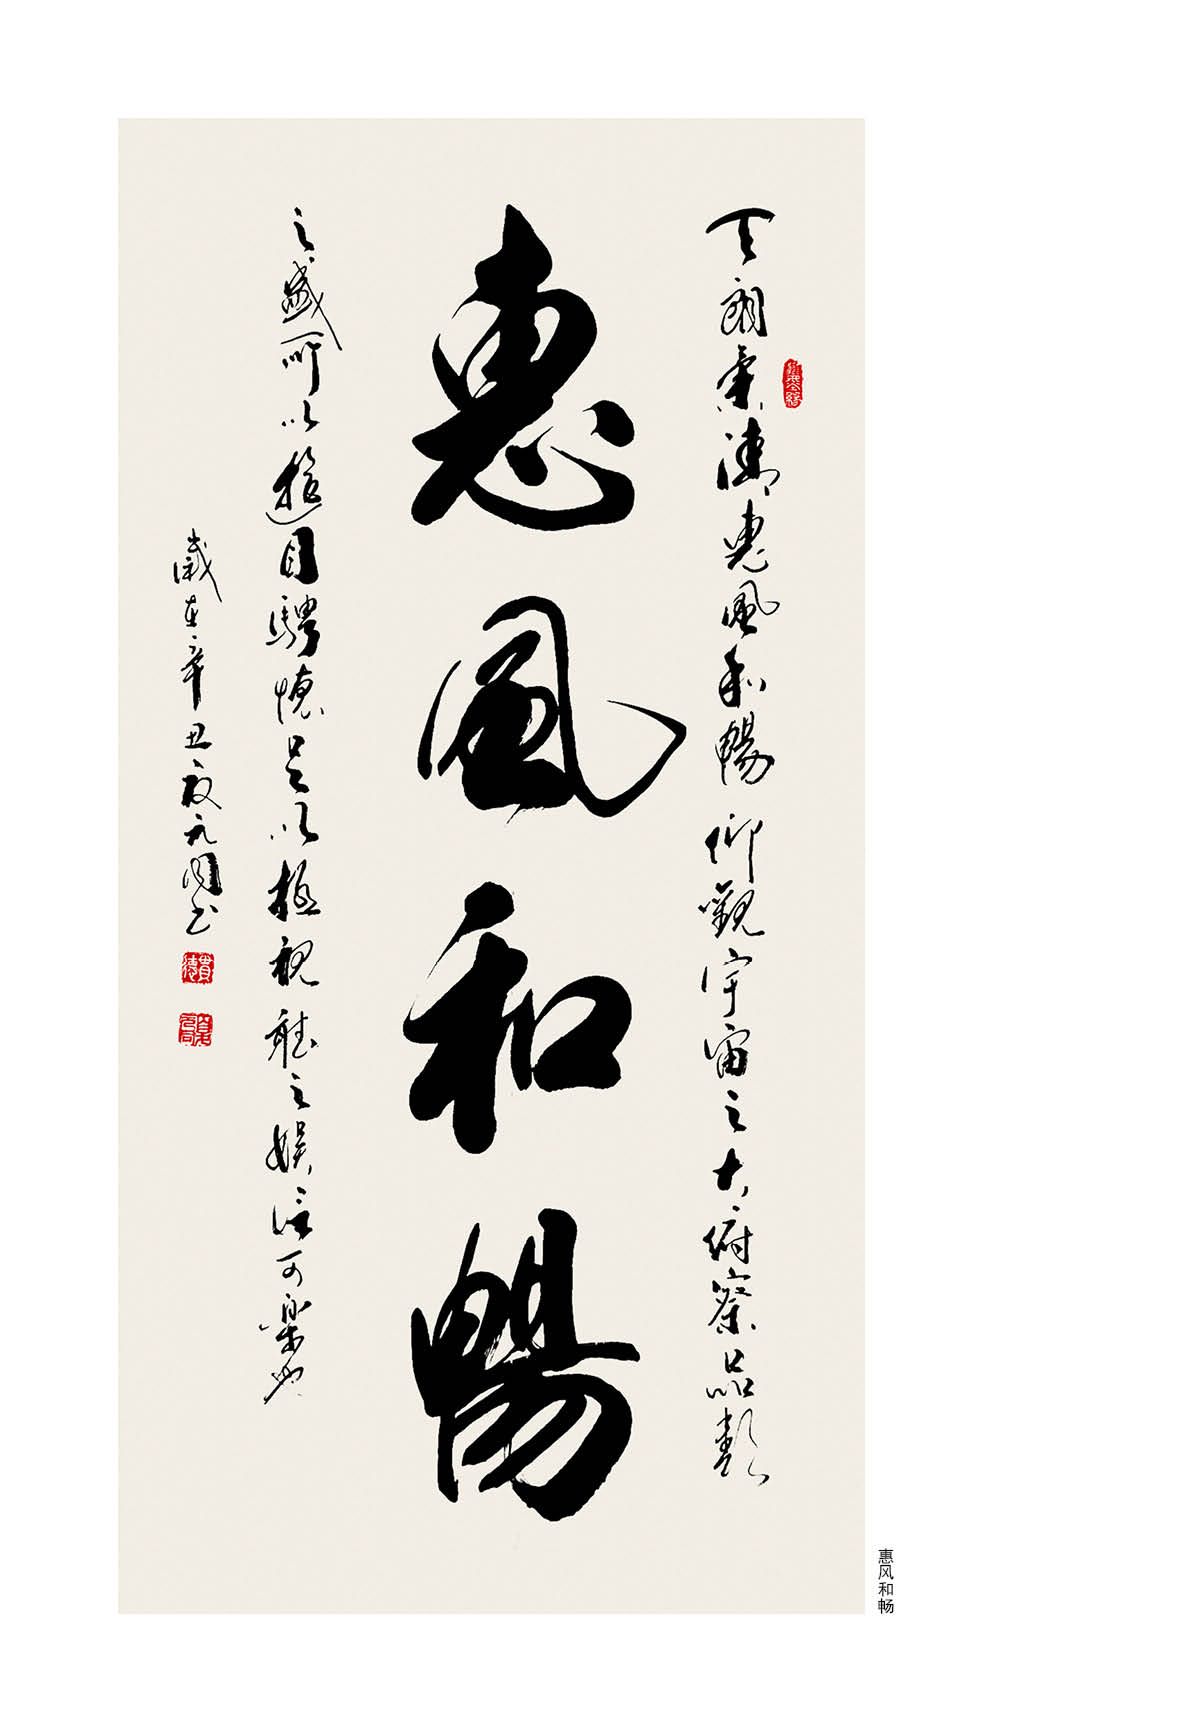 天朗氣清惠風和暢仰觀宇宙之大俯察品類
惠風和暢
之盛所以遊目騁懷足以極視聽之娛信可樂也
歲在辛丑夏元同書
惠风和畅